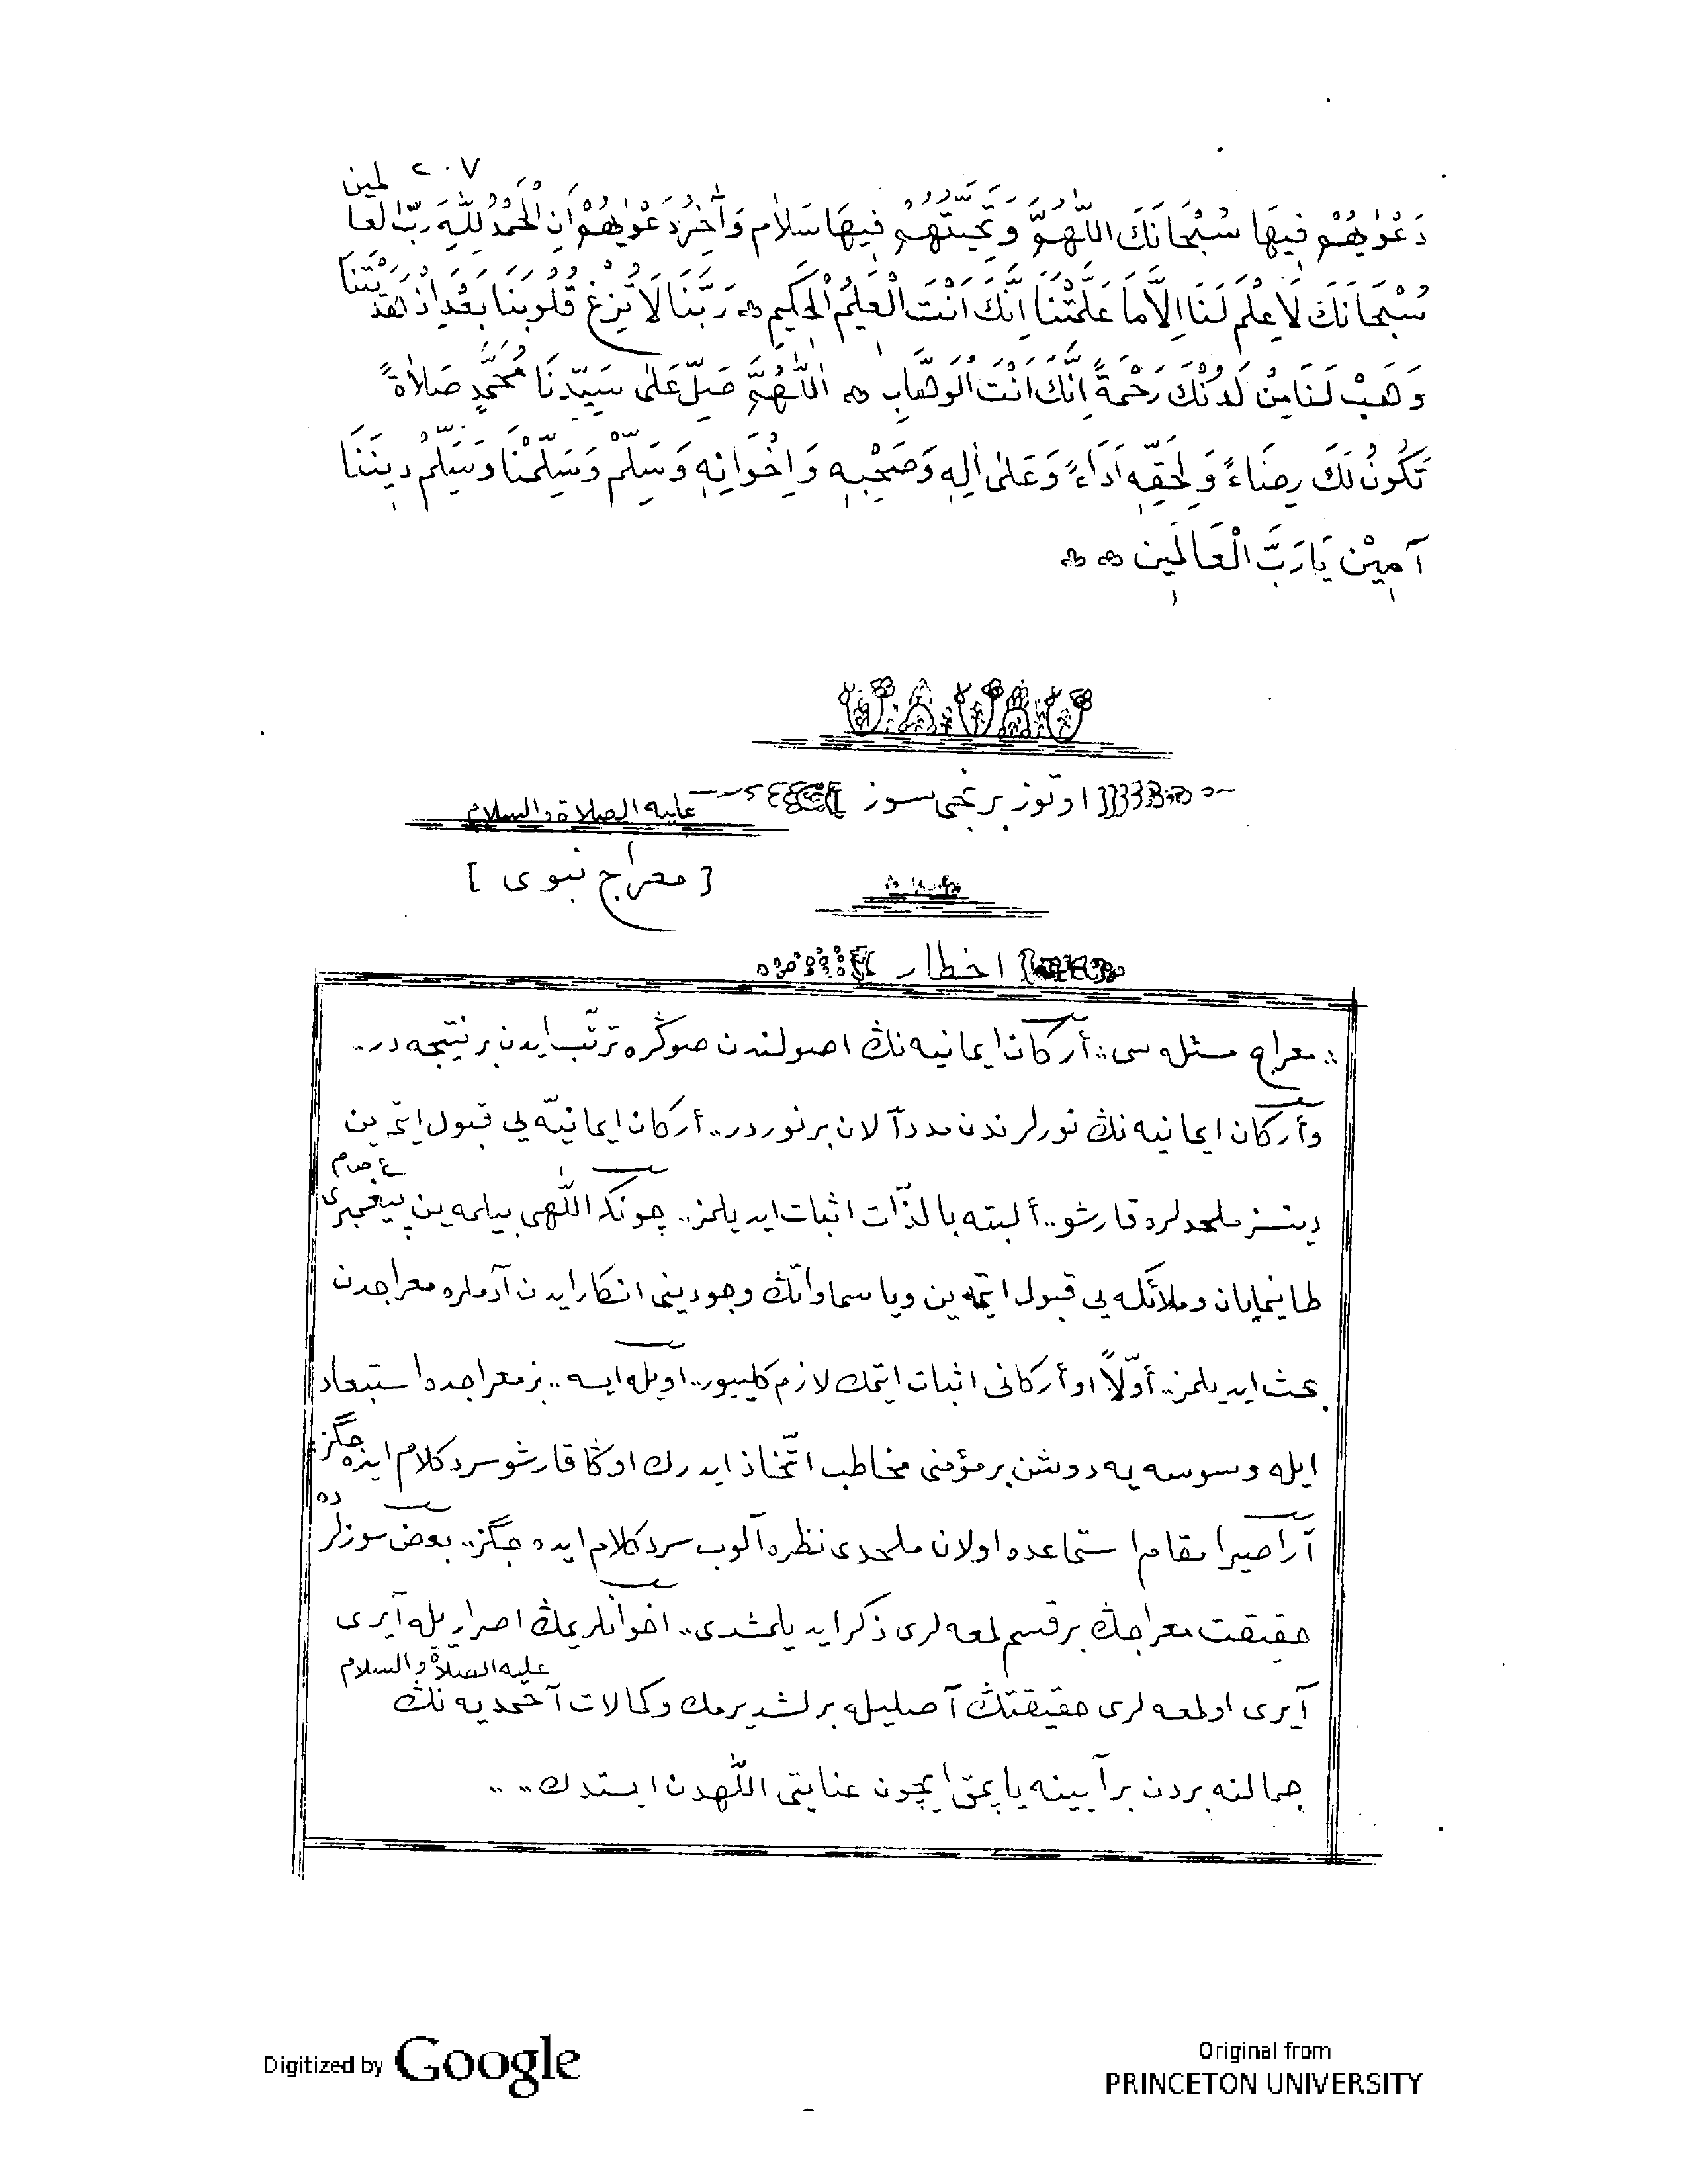 ٢٠٧
دَعْوٰيهُمْ فِيهَا سُبْحَانَكَ اللّٰهُمَّ وَتَحِيَّتُهُمْ فِيهَا سَلَامٌ وَآخِرُ دَعْوٰيهُمْ اَنِ الْحَمْدُ لِلّٰهِ رَبِّ الْعَالَمِين
سُبْحَانَكَ لَا عِلْمَ لَنَا اِلَّا مَا عَلَّمْتَنَا اِنَّكَ اَنْتَ الْعَلِيمُ الْحَكِيمِ ۞ رَبَّنَا لَا تُزِغْ قُلُوبَنَا بَعْدَ اِذْ هَدَيْتَنَا
وَهَبْ لَنَا مِنْ لَدُنْكَ رَحْمَةً اِنَّكَ اَنْتَ الْوَهَّابِ ۞ اَللّٰهُمَّ صَلِّ عَلٰى سَيِّدِنَا مُحَمَّدٍ صَلَاةً
تَكُونُ لَكَ رِضَاءً وَلِحَقِّهِ اَدَاءً وَعَلٰى اٰلِهِ وَصَحْبِهِ وَاِخْوَانِهِ وَسَلِّمْ وَسَلِّمْنَا وَسَلِّمْ دِينَنَا
آمِيْن يَا رَبَّ الْعَالَمِين ۞ ۞
اوتوز برنجى سوز
عليه الصلاة والسلام
[ معراج نبوى ]
اخطار
؞ معراج مسئله سى ؞ أركان ايمانيه نڭ اصولندن صوڭره ترتّب ايدن بر نتيجه در..
وأركان ايمانيه نڭ نورلرندن مدد آلان بر نوردر.. أركان ايمانيّه يى قبول ايتمه ين
دينسز ملحدلره قارشو.. ألبته بالذّات اثبات ايديلمز.. چونكه اللّٰهى بيلمه ين پيغمبرى ع.ص.م
طانيمايان وملائكه يى قبول ايتمه ين ويا سماواتڭ وجودينى انكار ايدن آدملره معراجدن
بحث ايديلمز.. أوّلًا او أركانى اثبات ايتمك لازم كلييور.. اويله ايسه.. بز معراجده استبعاد
ايله وسوسه يه دوشن بر مؤمنى مخاطب اتّخاذ ايدرك اوڭا قارشو سرد كلام ايده جگز.
آراصيرا مقام استماعده اولان ملحدى نظره آلوب سرد كلام ايده جگز.. بعض سوزلرده
حقيقت معراجڭ بر قسم لمعه لرى ذكر ايديلمشدى.. اخوانلريمڭ اصراريله آيرى
آيرى او لمعه لرى حقيقتڭ آصليله برلشديرمك وكمالات آحمديه نڭ عليه الصلاة والسلام
جمالنه بردن بر آيينه ياپمق ايچون عنايتى اللّٰهدن ايستدك.. ..
Digitized by Google
Original from
PRINCETON UNIVERSITY